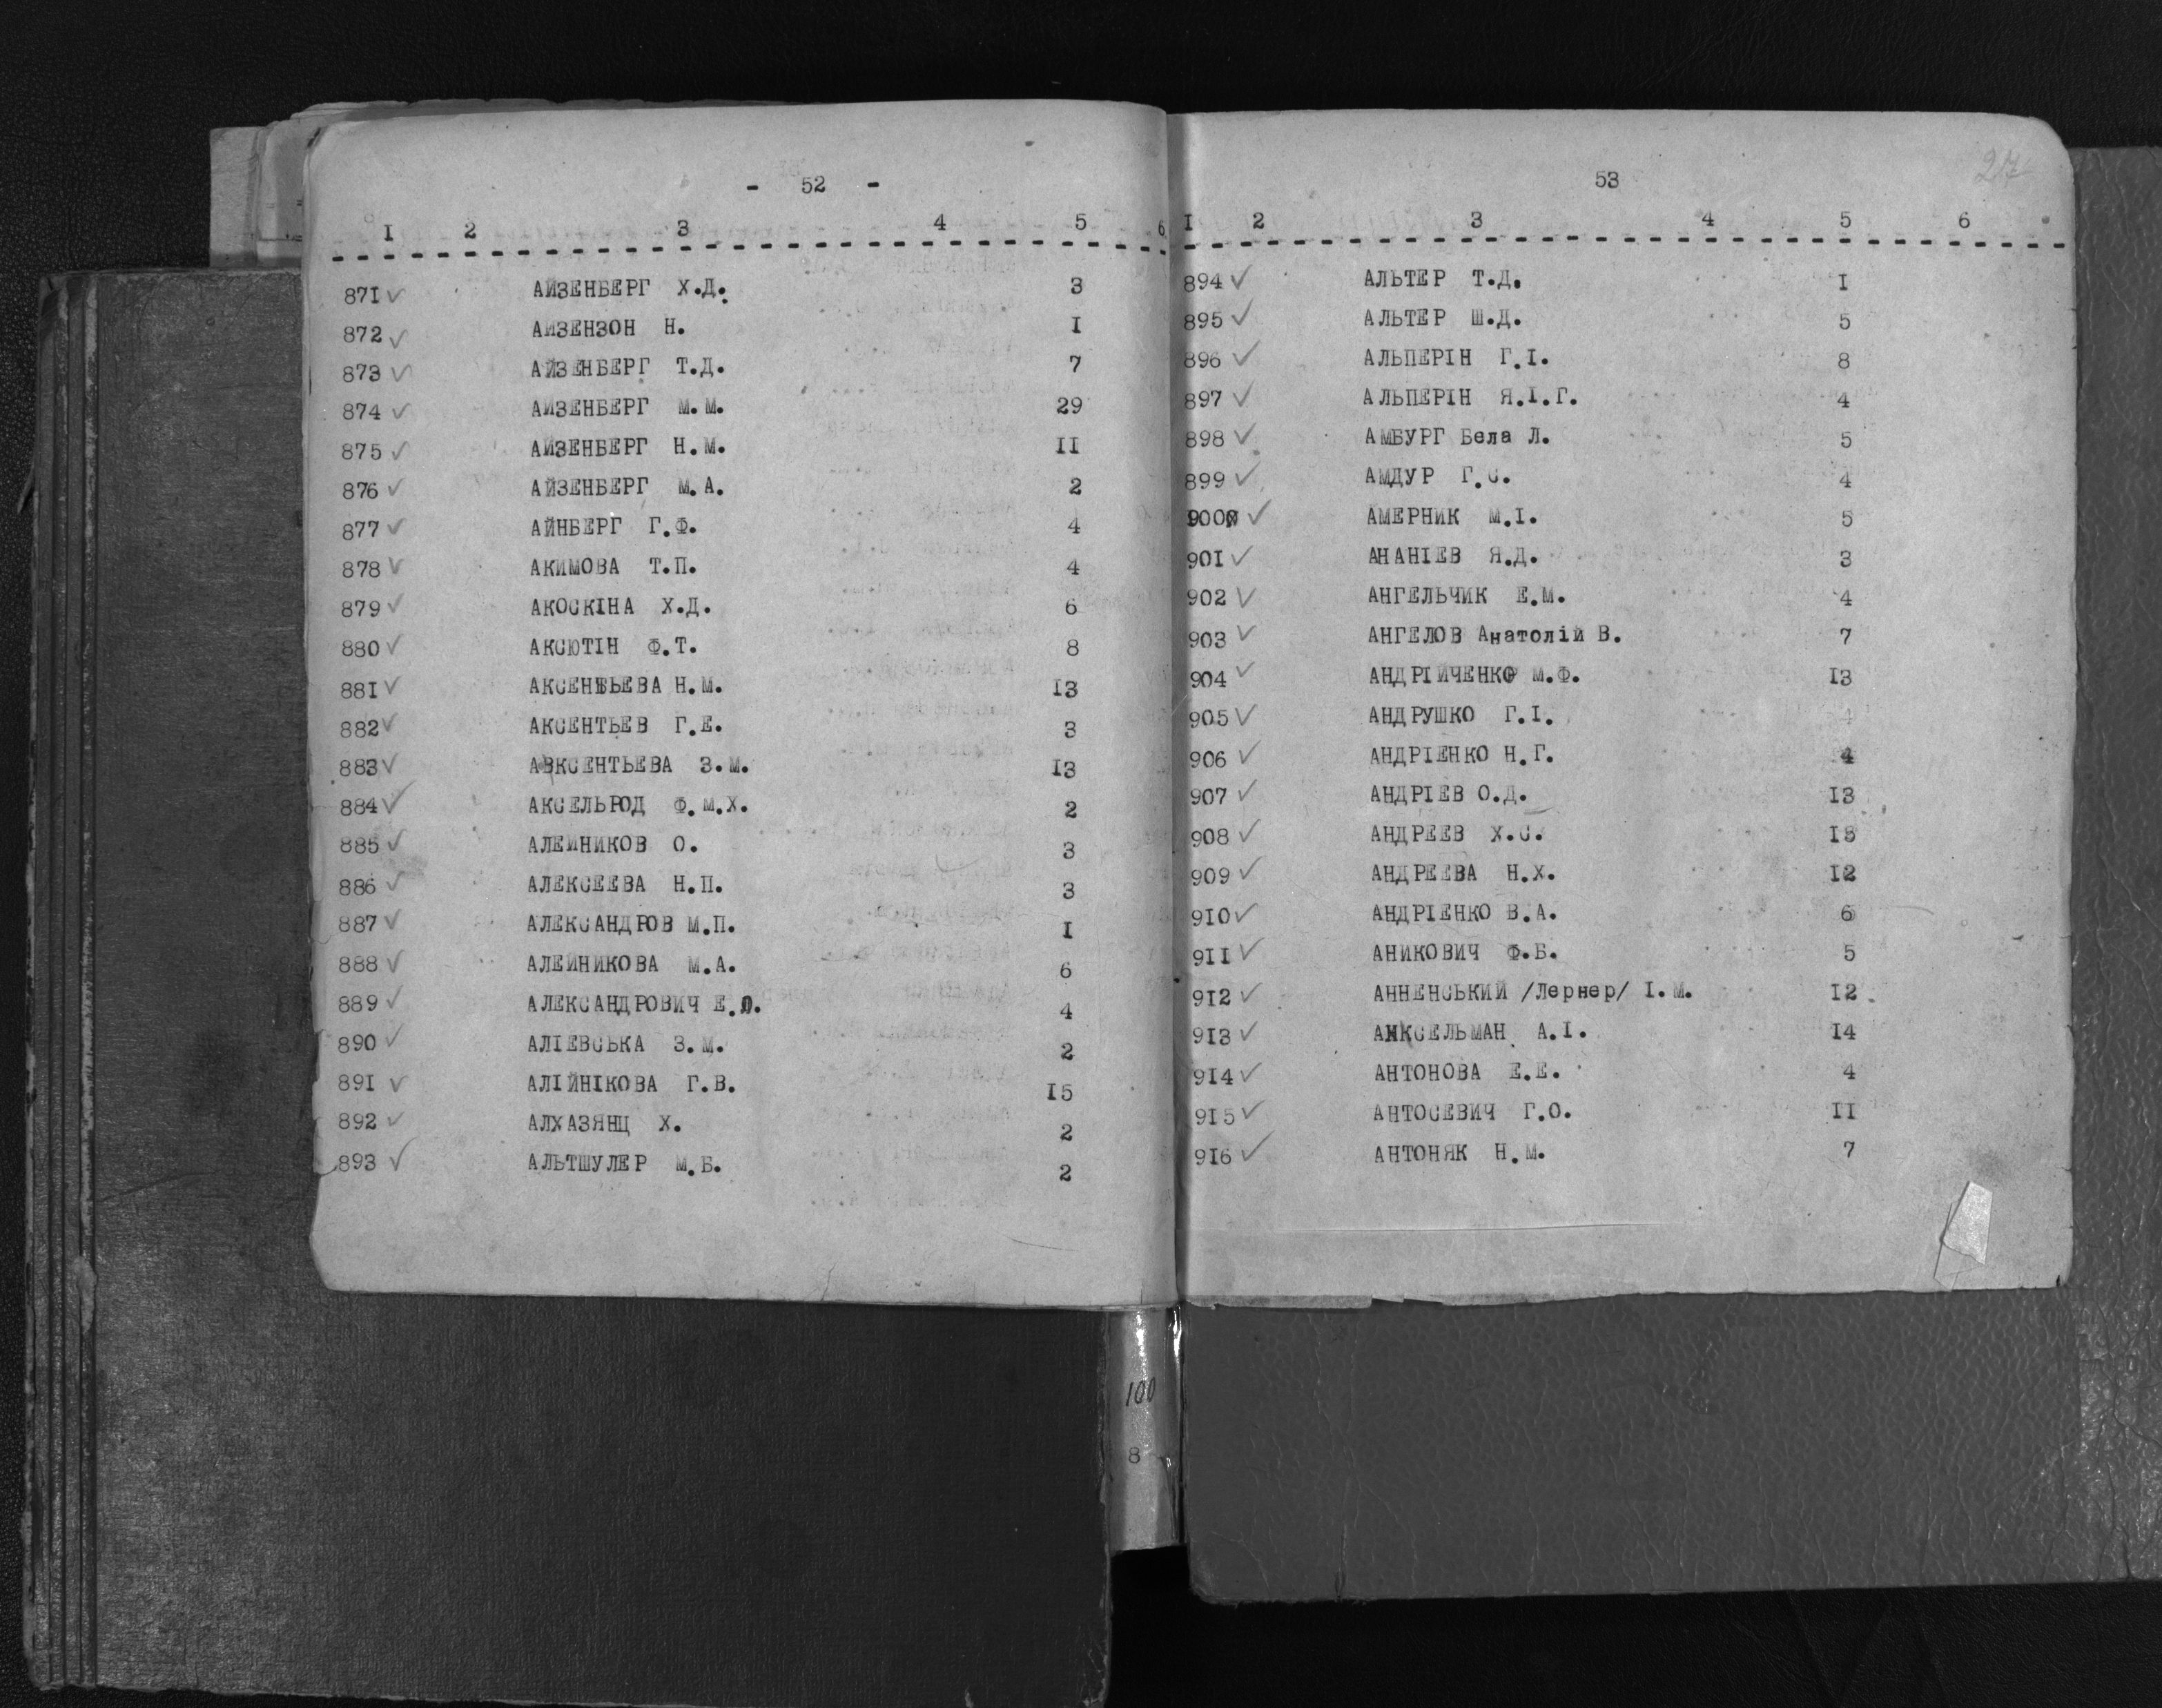 - 52 -
I 2 3 4 5 6
871 АЙЗЕНБЕРГ Х.Д. 3
872 АЙЗЕНЗОН Н. I
873 АЙЗЕНБЕРГ Т.Д. 7
874 АЙЗЕНБЕРГ М.М. 29
875 АЙЗЕНБЕРГ Н.М. II
876 АЙЗЕНБЕРГ М.А. 2
877 АЙНБЕРГ Г.Ф. 4
878 АКИМОВА Т.П. 4
879 АКОСКІНА Х.Д. 6
880 АКСЮТІН Ф.Т. 8
881 АКСЕНТЬЕВА Н.М. I3
882 АКСЕНТЬЕВ Г.Е. 3
883 АВКСЕНТЬЕВА З.М. I3
884 АКСЕЛЬРОД Ф.М.Х. 2
885 АЛЕЙНИКОВ О. 3
886 АЛЕКСЕЕВА Н.П. 3
887 АЛЕКСАНДРОВ М.П. I
888 АЛЕЙНИКОВА М.А. 6
889 АЛЕКСАНДРОВИЧ Е.О. 4
890 АЛІЕВСЬКА З.М. 2
891 АЛІЙНІКОВА Г.В. I5
892 АЛХАЗЯНЦ Х. 2
893 АЛЬТШУЛЕР М.Б. 2
53
27
I 2 3 4 5 6
894 АЛЬТЕР Т.Д. I
895 АЛЬТЕР Ш.Д. 5
896 АЛЬПЕРІН Г.І. 8
897 АЛЬПЕРІН Я.І.Г. 4
898 АМБУРГ Бела Л. 5
899 АМДУР Г.С. 4
900 АМЕРНИК М.І. 5
90I АНАНІЕВ Я.Д. 3
902 АНГЕЛЬЧИК Е.М. 4
903 АНГЕЛОВ Анатолій В. 7
904 АНДРІЙЧЕНКО М.Ф. I3
905 АНДРУШКО Г.І. 4
906 АНДРІЕНКО Н.Г. 4
907 АНДРІЕВ О.Д. I3
908 АНДРЕЕВ Х.С.
909 АНДРЕЕВА Н.Х. I2
9I0 АНДРІЕНКО В.А. 6
9II АНИКОВИЧ Ф.Б. 5
9I2 АННЕНСЬКИЙ /Лернер/ І.М. I2
9I3 АНКСЕЛЬМАН А.І. I4
9I4 АНТОНОВА Е.Е. 4
9I5 АНТОСЕВИЧ Г.О. II
9I6 АНТОНЯК Н.М. 7
100
8